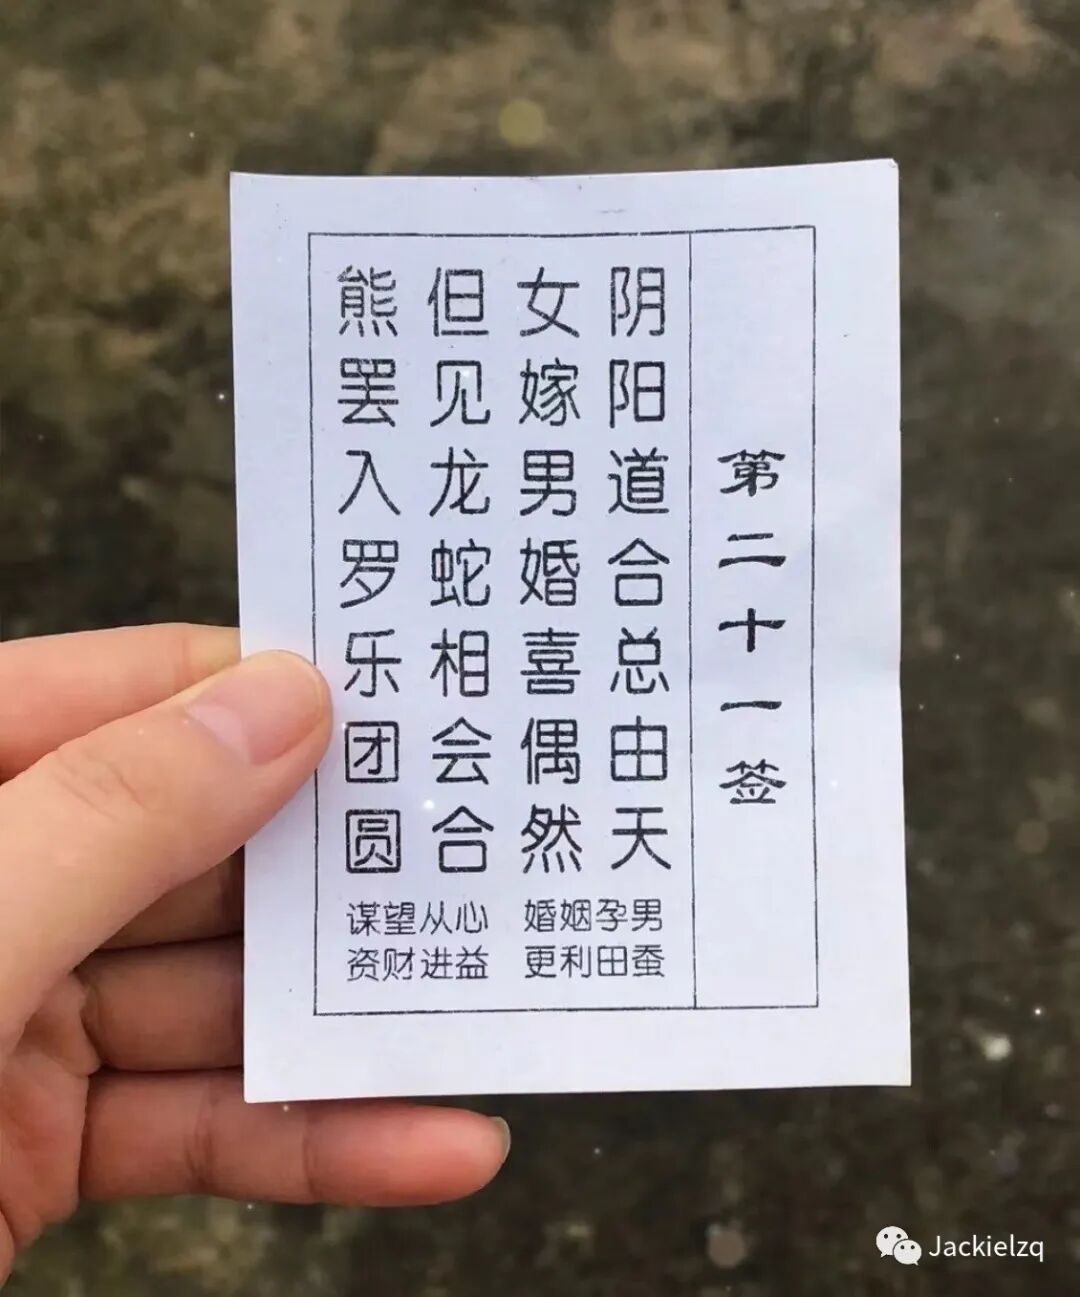 第二十一签
阴阳道合总由天
女嫁男婚喜偶然
但见龙蛇相会合
熊罢入罗乐团圆
婚姻孕男
更利田蚕
谋望从心
资财进益
Jackielzq